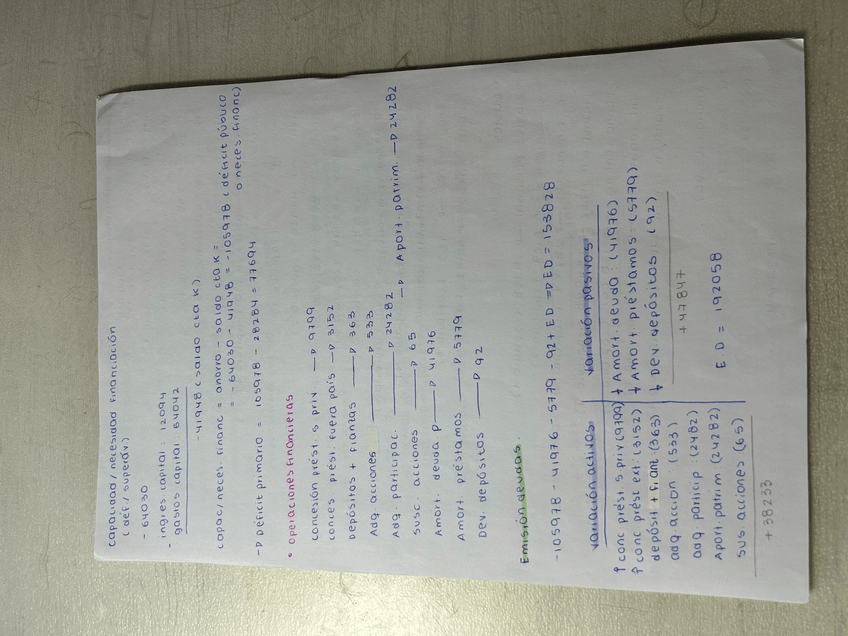 capacidad / necesidad financiación
( def / superáv)
- 64030
- ingres capital : 12094
- gastos capital 54042
-41948 (saldo cta K)
capac/neces. financ = ahorro - saldo cta K =
= -64030 - 41948 = -105978 (déficit público
o neces. financ)
-D Déficit primario = 105978 - 28284 = 77694
• operaciones financieras
concesión prést s priv —D 9799
conces prést. fuera país —D 3152
Depósitos + fianzas —D 363
Adq acciones —D 533
Adq. participac. —D 24282 —D Aport. patrim. —D 24282
susc. acciones —D 65
Amort. deuda p —D 41976
Amort préstamos —D 5779
Dev. depósitos —D 92
Emisión deudas
-105978 - 41976 - 5779 - 92 + ED = D ED = 153828
variación activos variación pasivos
↑ conc prést s priv (9799) ↓ Amort. deuda : (41976)
↑ conc prést ext: (3152) ↓ Amort préstamos : (5779)
depósit + fiant. (363) ↓ Dev. depósitos : (92)
adq accion : (533) + 47847
adq particip (2482)
Aport. patrim (24282) ED = 192058
sus acciones (65)
+ 38233